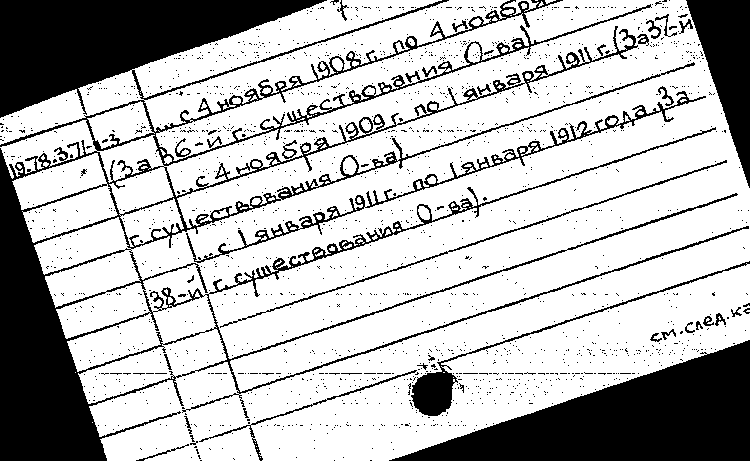 7
... с 4 ноября 1908 г. по 4 ноября
19.78.3.71-
(За 36-й г. существования О-ва).
... с 4 ноября 1909 г. по 1 января 1911 г. (За 37-й
г. существования О-ва).
... с 1 января 1911 г. по 1 января 1912 года. За
38-й г. существования О-ва).
см. след. ка